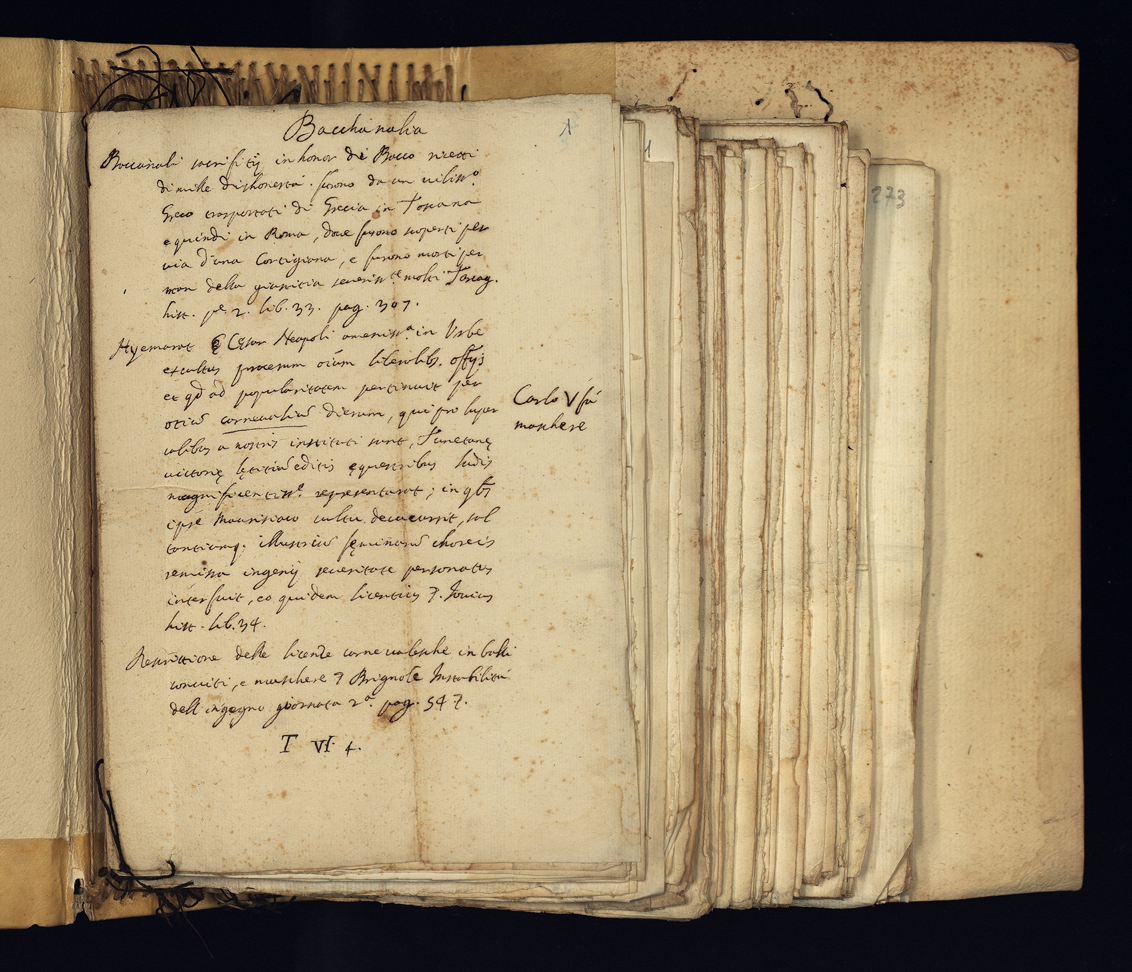 Bacchanalia
1
Baccanali sacrifitij in honor di Bacco ripieni
di mille dishonestà. furono da un viliss.º
Greco trasportati di Grecia in Toscana
e quindi in Roma, dove furono scoperti per
via d'una Cortigiana, e furono morti per
man della giustitia severiss.te molti Tarcag.
hist. p.e 2. lib. 33. pag. 307.
Hyemavit Cęsar Neapoli ameniss.a in Urbe
excultus procerum oīum liberalibs. offijs
et qd ad popularitatem pertinuit per
otiū carnevaliū dierum, qui pro luper
calibus a nostris instituti sunt, Tunetanę
victorię lętitiā editis equestribus ludis
magnificentiss.e repręsentavit; in qbs
ipse Maurisiaco cultu decucurrit, sal
tantiumq. illustriū fęminarū choreis
remissa ingenij severitate personatus
interfuit, eo quidem licentius 7. Iovius
hist. lib. 34.
Carlo V fà
maschere
Restrittione delle licenze carnevalesche in balli
conviti, e maschere 7 Brignole Instabilità
dell'ingegno giornata 2.a pag. 547.
T VI. 4.
1
273